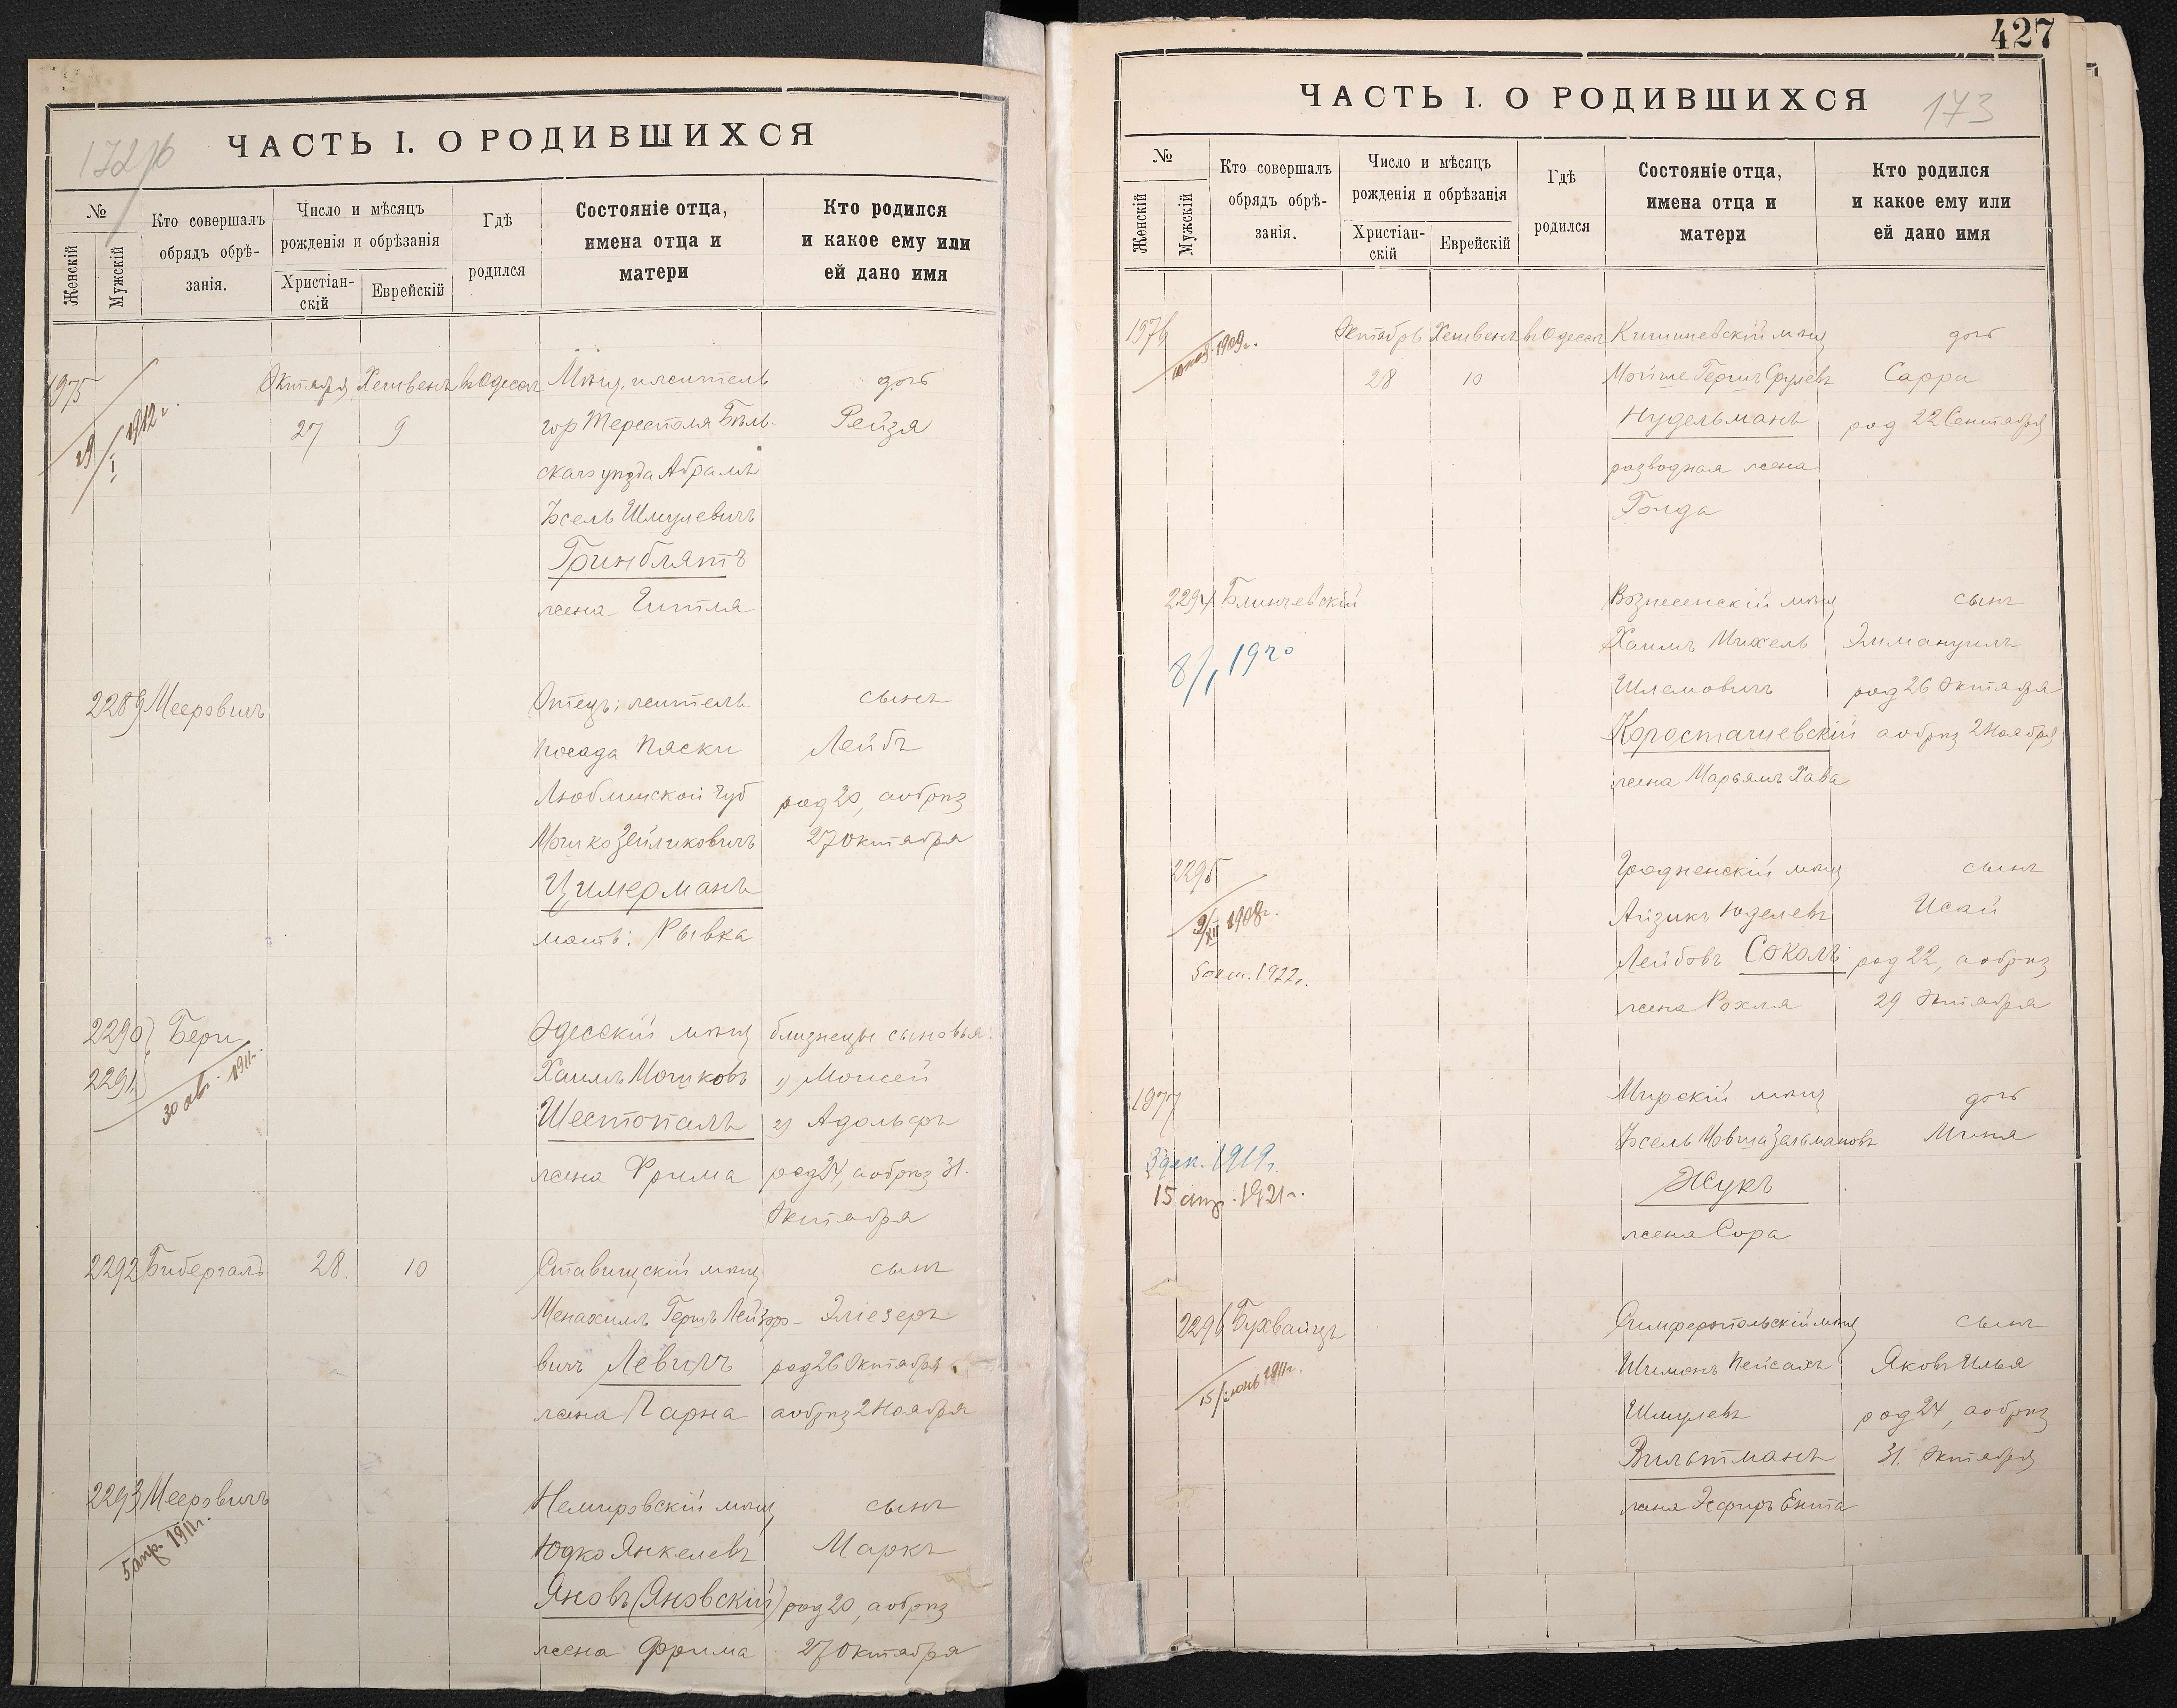 172 об
ЧАСТЬ I. О РОДИВШИХСЯ
№
Женскій
Мужскій
Кто совершалъ
обрядъ обрѣ-
занія.
Число и мѣсяцъ
рожденія и обрѣзанія
Христіан-
скій
Еврейскій
Гдѣ
родился
Состояніе отца,
имена отца и
матери
Кто родился
и какое ему или
ей дано имя
1975 Октября Хешвенъ въ Одессѣ Мѣщ. и житель дочь
29/I 1912 г. 27 9 гор Тересполя Бѣль- Рейзя
скаго уѣзда Абрамъ
Іосель Шмулевичъ
Гринблятъ
жена Гитля
2289 Мееровичъ Отецъ: житель сынъ
посада Пяски Лейбъ
Люблинской губ род 20, а обрѣз
Мошко Зейликовичъ 27 Октября
Цимерманъ
мать: Рывка
2290) Бери Одесскій мѣщ близнецы сыновья:
2291) Хаимъ Мошковъ 1) Моисей
30 ав. 1911 г. Шестопалъ 2) Адольфъ
жена Фрима род 24, а обрѣз 31.
Октября
2292 Бибергалъ 28. 10 Ставищскій мѣщ сынъ
Менахимъ Гершъ Лейзеро- Эліезеръ
вичъ Левичъ род 26 Октября.
жена Чарна а обрѣз 2 Ноября
2293 Мееровичъ Немировскій мѣщ сынъ
5 апр. 1911 г. Юдко Янкелевъ Маркъ
Яновъ (Яновскій) род 20, а обрѣз
жена Фрима 27 Октября
427
173
ЧАСТЬ I. О РОДИВШИХСЯ
№
Женскій
Мужскій
Кто совершалъ
обрядъ обрѣ-
занія.
Число и мѣсяцъ
рожденія и обрѣзанія
Христіан-
скій
Еврейскій
Гдѣ
родился
Состояніе отца,
имена отца и
матери
Кто родился
и какое ему или
ей дано имя
1976 1909 г. Октябрь Хешвенъ въ Одессѣ Кишиневскій мѣщ дочь
28 10 Мойше Гершъ Срулевъ Сарра
Нудельманъ род 22 Сентября
разводная жена
Голда
2294 Блинчевскій Вознесенскій мѣщ сынъ
8/I 1920 Хаимъ Михель Эммануилъ
Шлемовичъ род 26 Октября
Коростышевскій а обрѣз 2 Ноября
жена Марьямъ Хава
2295 Гродненскій мѣщ сынъ
9/XII 1908 г. Айзикъ Юделевъ Исай
5 окт. 1922 г. Лейбовъ Соколъ род 22, а обрѣз
жена Рохля 29 Октября
1977 Мирскій мѣщ дочь
3 дек. 1919 г. Іосель Мовша Залмановъ Миня
15 апр. 1921 г. Жукъ
жена Сора
2296 Бухвайцъ Симферопольскій мѣщ сынъ
15 іюнь 1911 г. Шимонъ Пейсахъ Яковъ Илья
Шмулевъ род 24, а обрѣз
Вильтманъ 31. Октября
жена Эсфирь Ента